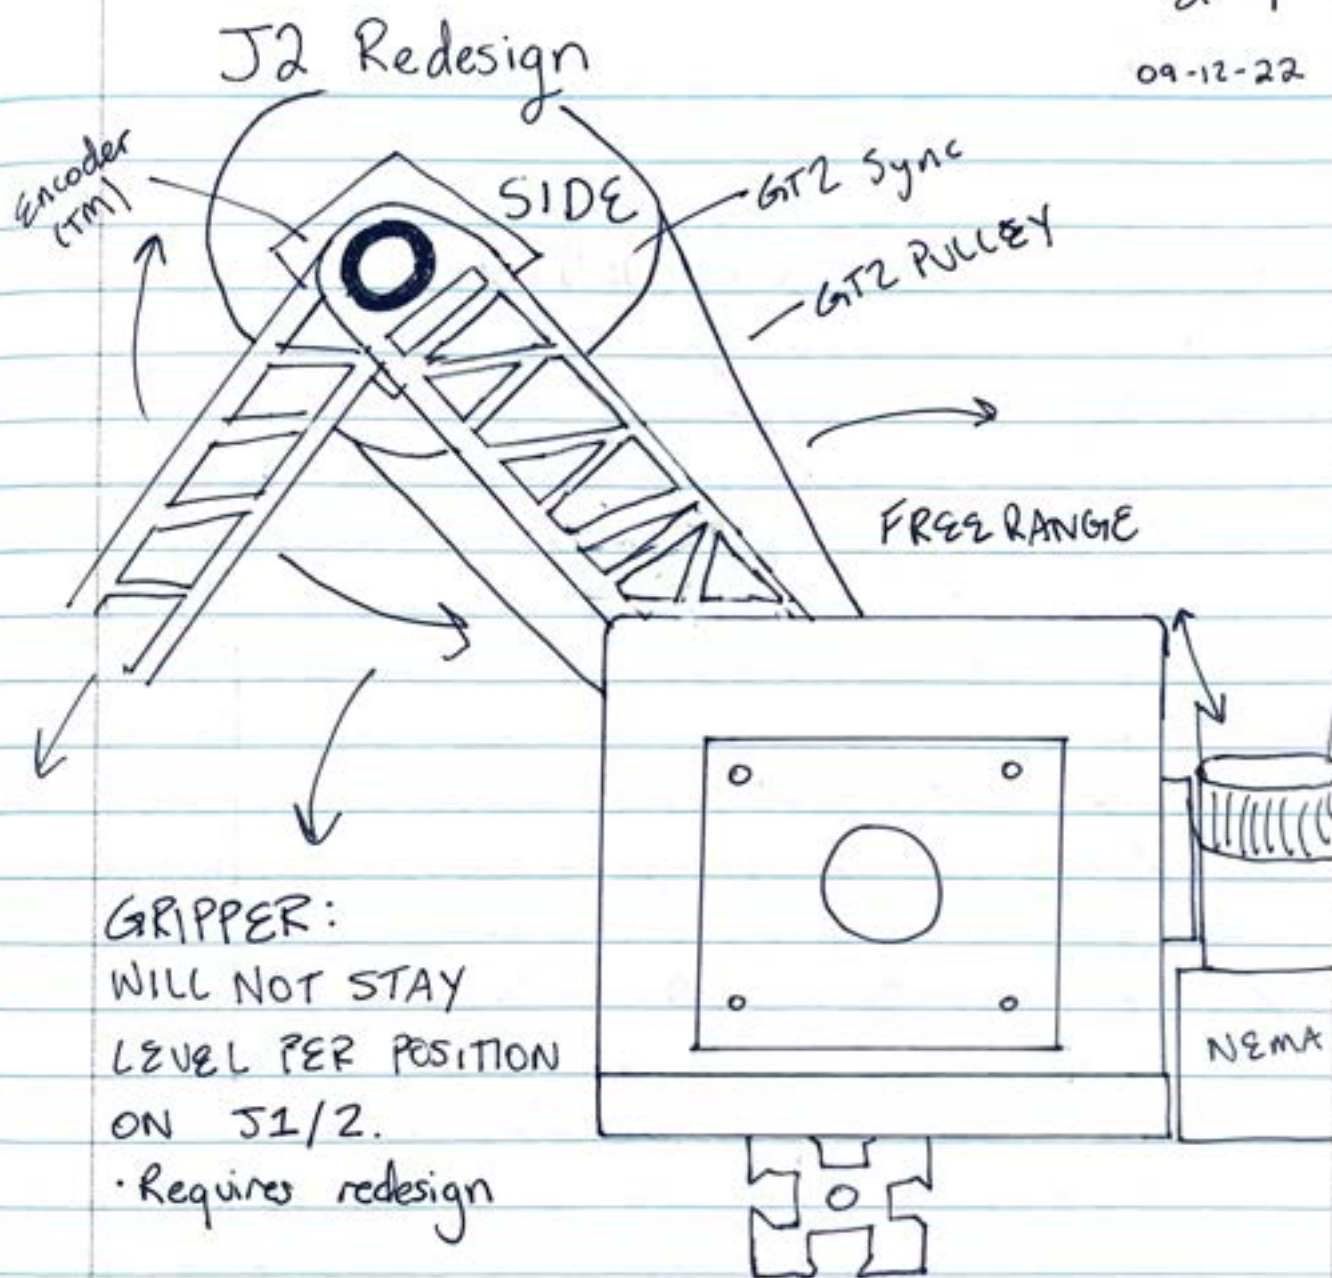 J2 Redesign
09-12-22
Encoder
(TM)
SIDE
GT2 Sync
GT2 PULLEY
FREE RANGE
GRIPPER:
WILL NOT STAY
LEVEL PER POSITION
ON J1/2.
· Requires redesign
NEMA